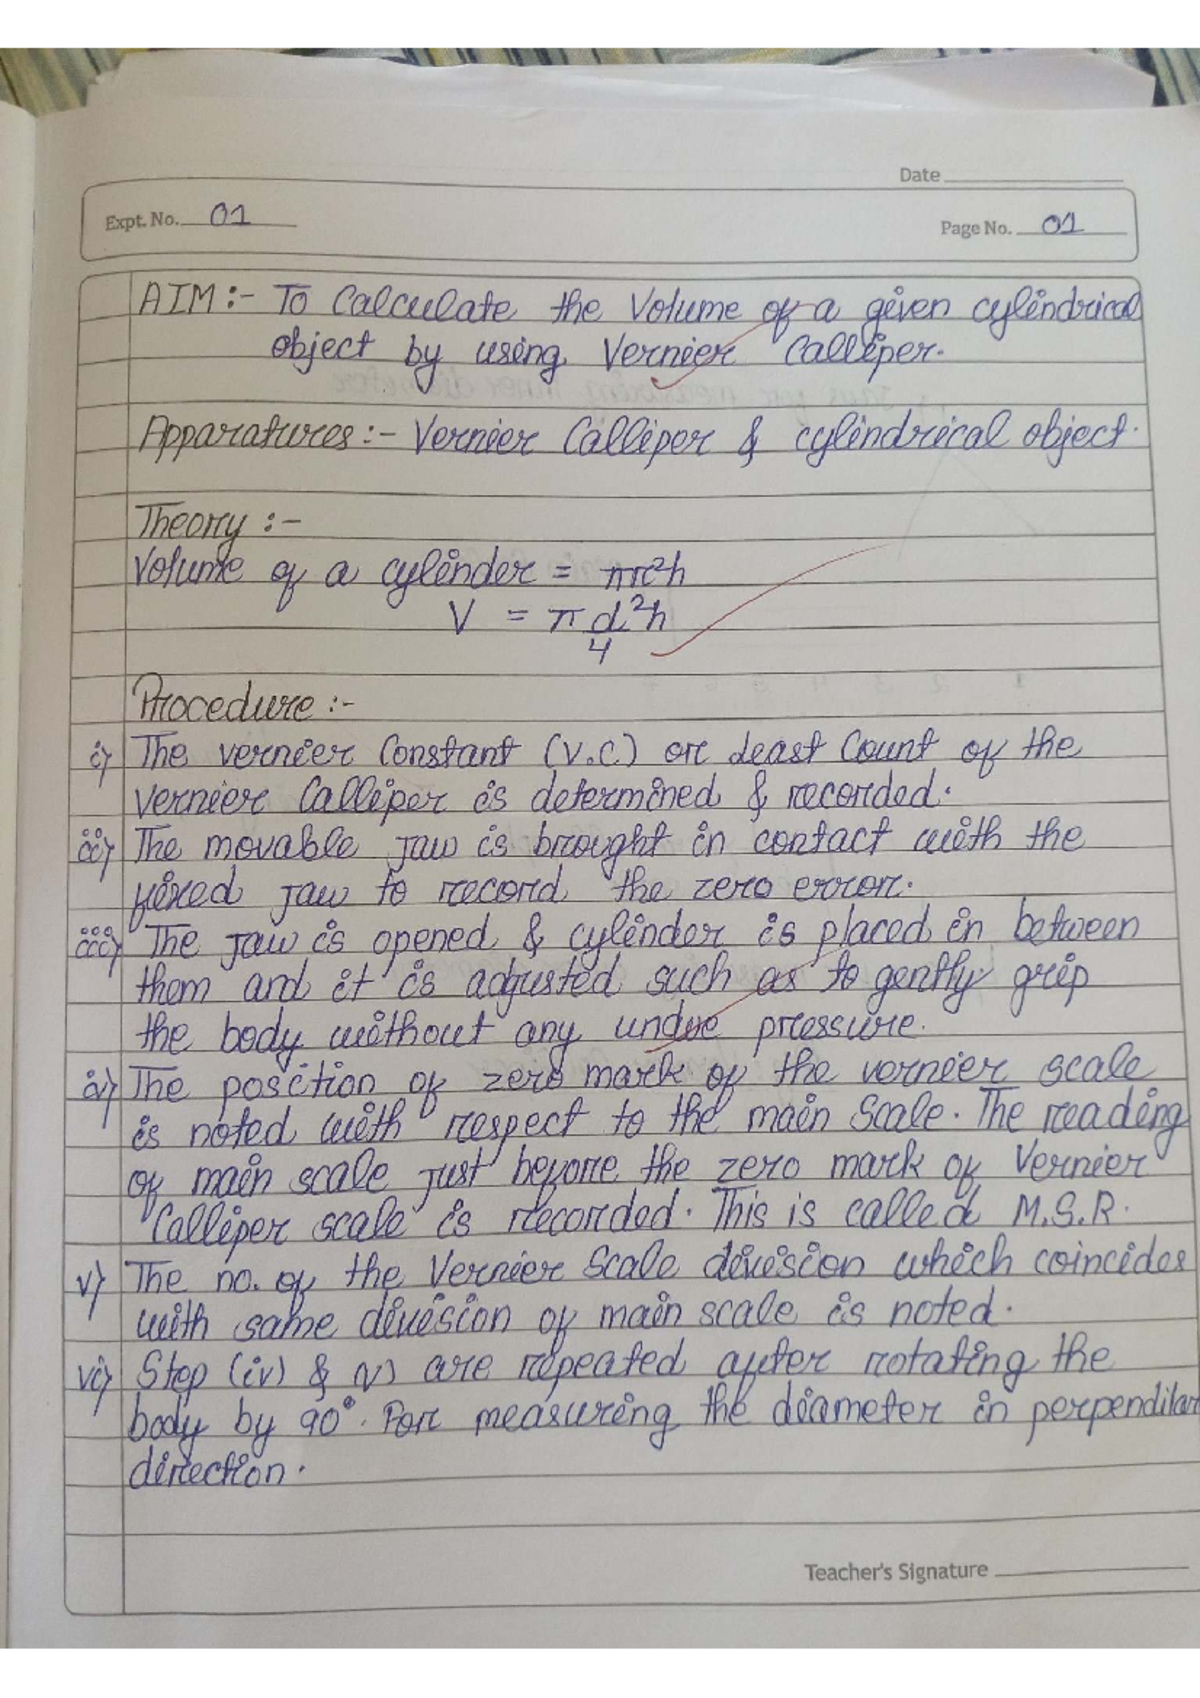 Date
Expt. No. 01
Page No. 01
AIM :- To Calculate the Volume of a given cylindrical
object by using Vernier Calliper.
Apparatures :- Vernier Calliper & cylindrical object.
Theory :-
Volume of a cylinder = πr²h
V = π d²h
4
Procedure :-
i) The vernier Constant (V.C) or Least Count of the
vernier Calliper is determined & recorded.
ii) The movable Jaw is brought in contact with the
fixed Jaw to record the zero error.
iii) The Jaw is opened & cylinder is placed in between
them and it is adjusted such as to gently grip
the body without any undue pressure.
iv) The position of zero mark of the vernier scale
is noted with respect to the main Scale. The reading
of main scale just before the zero mark of Vernier
Calliper scale is recorded. This is called M.S.R.
v) The no. of the Vernier Scale division which coincides
with same division of main scale is noted.
vi) Step (iv) & v) are repeated after rotating the
body by 90°. For measuring the diameter in perpendilar
direction.
Teacher's Signature